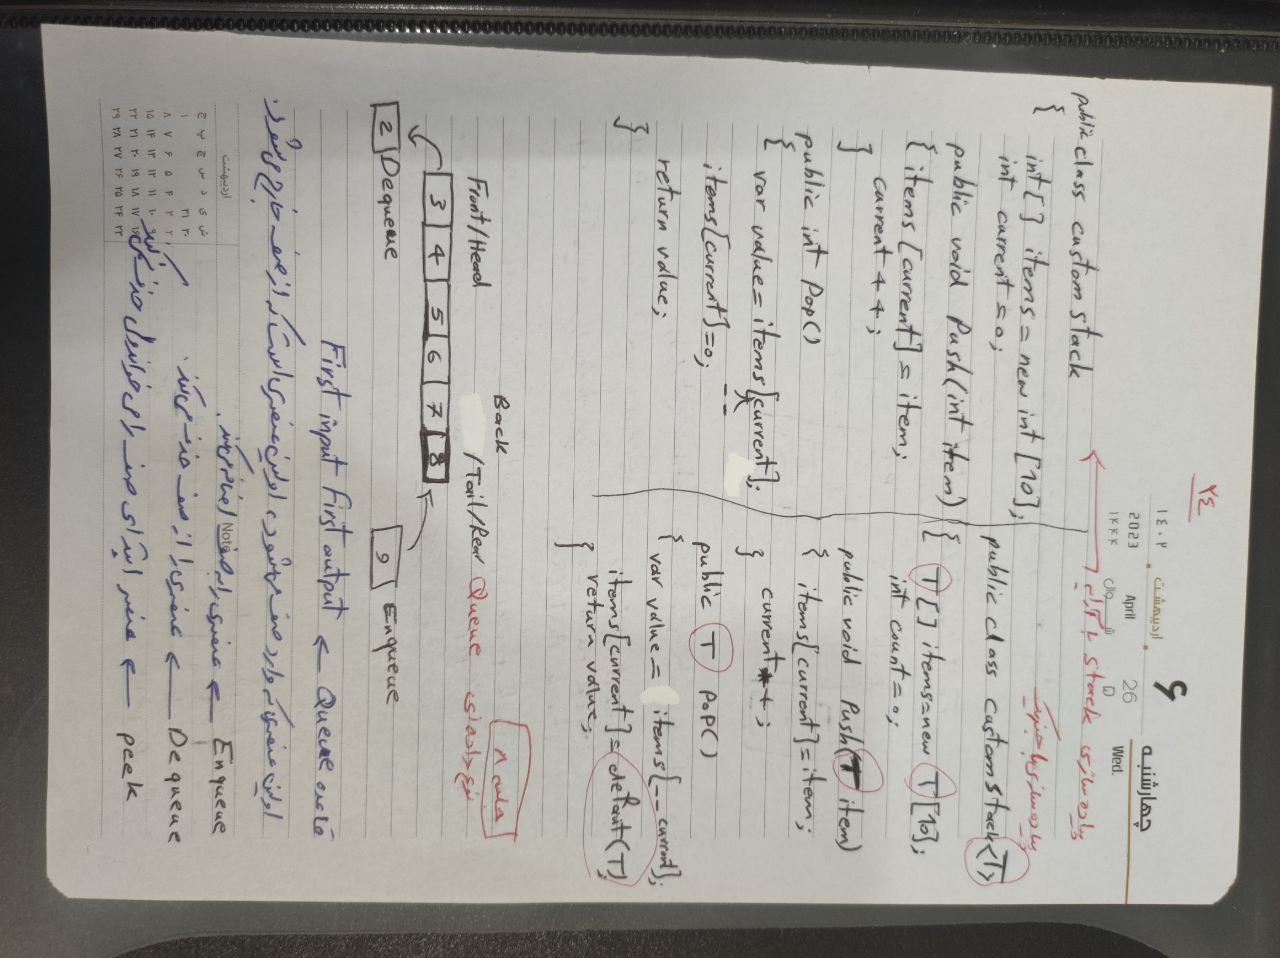 ۲۴
چهارشنبه
۶
اردیبهشت
۱۴۰۲
Wed.
26
April
2023
شوال
۱۴۴۴
پیاده سازی stack با آرایه
public class custom stack
{
int[] items = new int [10];
int current = 0;
public void Push(int item)
{ items [current] = item;
current ++;
}
public int Pop()
{
var value = items [current];
--
items[current]=0;
return value;
}
پیاده سازی با جنریک
public class customStack<T>
{ T[] items=new T[10];
int count=0;
public void Push(T item)
{ items[current]=item;
current++;
}
public T PoP()
{ var value = items[-- current];
items[current]=defaut(T);
return value;
}
جلسه ۸
نوع داده‌ای Queue
Front/Head
Back
/Tail/Rear
3 4 5 6 7 8
2 Dequeue
9 Enqueue
قاعده Queue ← First input First output
اولین عنصری که وارد صف میشود، اولین عنصری است که از صف خارج می‌شود.
Note
Enqueue ← عنصری را به صف اضافه می‌کند.
Dequeue ← عنصری را از صف حذف می‌کند.
peek ← عنصر ابتدای صف را می خواند ولی حذف نمی‌کند
اردیبهشت
ش ی د س چ پ ج
۳۰ ۳۱ ۱
۲ ۳ ۴ ۵ ۶ ۷ ۸
۹ ۱۰ ۱۱ ۱۲ ۱۳ ۱۴ ۱۵
۱۶ ۱۷ ۱۸ ۱۹ ۲۰ ۲۱ ۲۲
۲۳ ۲۴ ۲۵ ۲۶ ۲۷ ۲۸ ۲۹